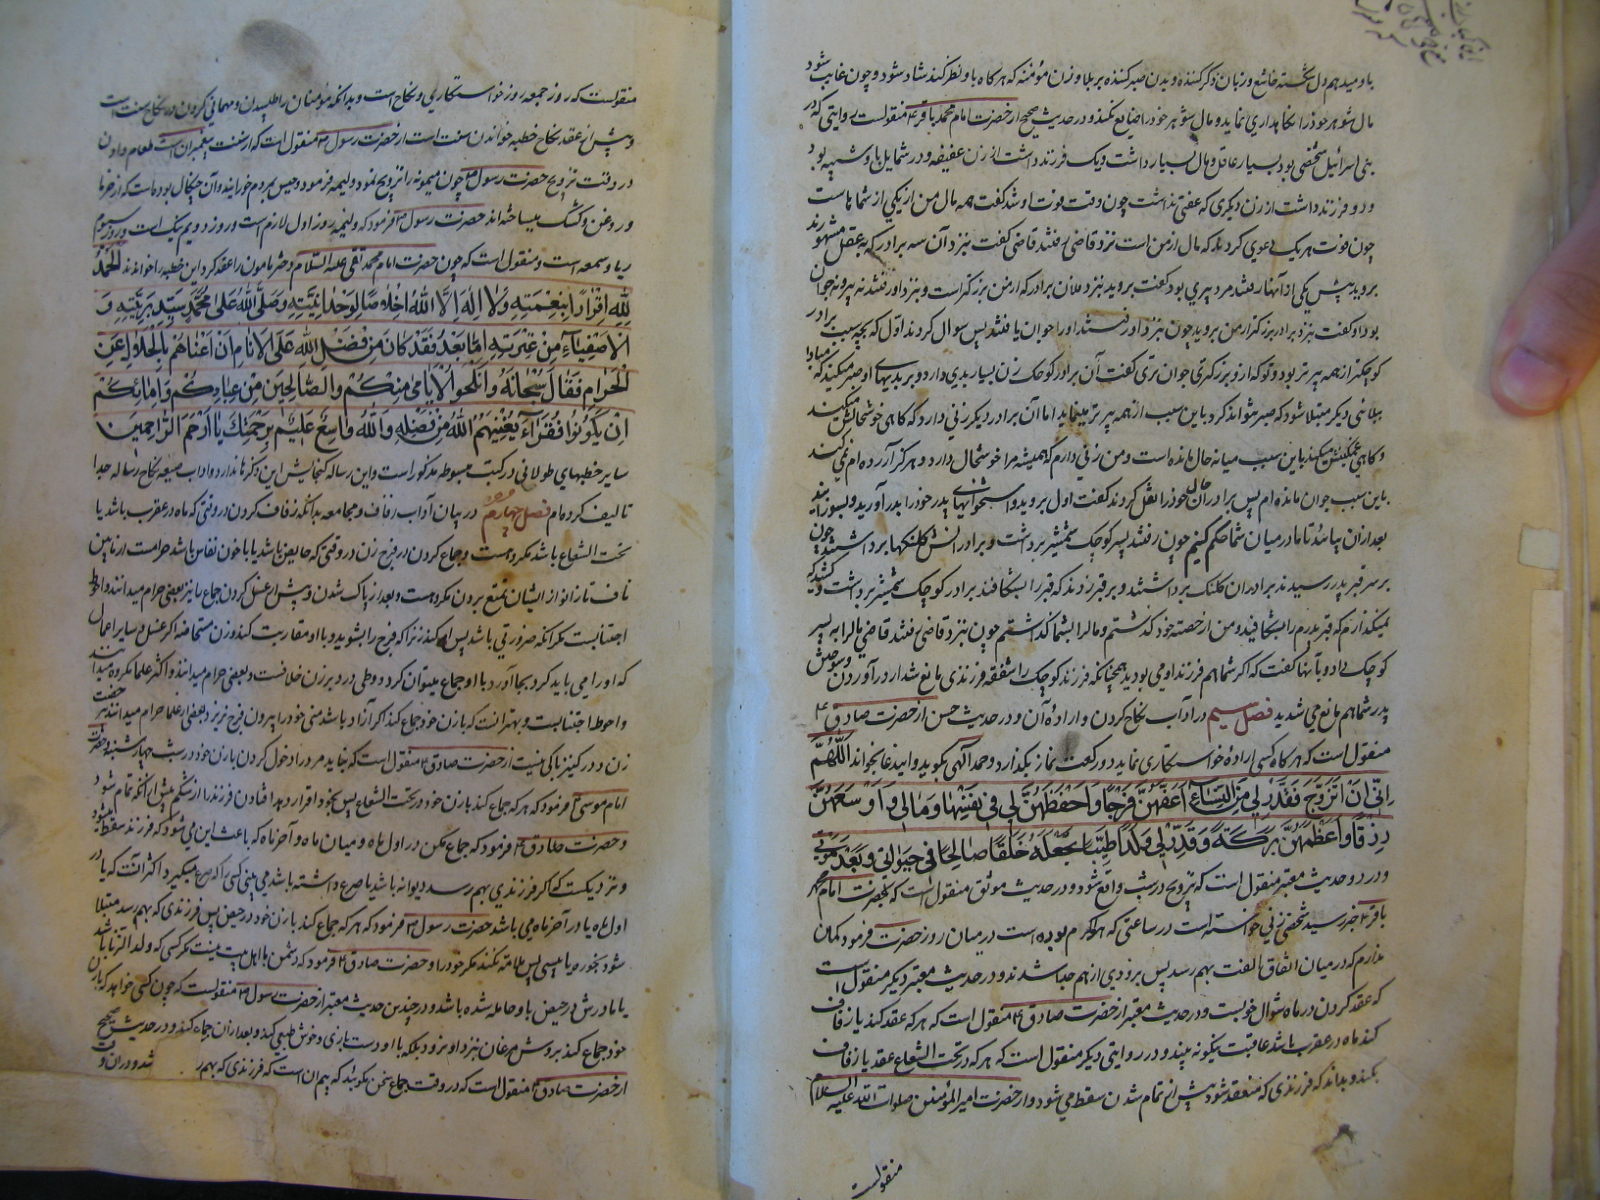 با و میدهم دل شکسته خاشع و زبان ذکر کننده و بدن صبر کننده بر بلا و زن مؤمنه که هرگاه باو نظر کند شاد شود و چون غایب شود
مال شوهر خود را نگاهداری نماید و مال شوهر خود را ضایع نکند و در حدیث صحیح از حضرت امام محمد باقر ع منقولست روایتی که در
بنی اسرائیل شخصی بود بسیار عاقل و مال بسیار داشت و یک فرزند داشت از زن عفیفه و در شمایل باو شبیه بود
و دو فرزند داشت از زن دیگری که عفتی نداشت چون وقت فوت او شد گفت همه مال من از یکی از شماهاست
چون فوت هر یک دعوی کردند که مال از من است نزد قاضی رفتند قاضی گفت نزد آن سه برادر که به عقل مشهورند
بروید پیش یکی از آنها رفتند مرد پیری بود گفت بروید نزد فلان برادر که از من بزرگتر است و نزد او رفتند نه پیر و نه جوان
بود او گفت نزد برادر بزرگتر از من بروید چون نزد او رفتند او را جوان یافتند پس سوال کردند اول که بچه سبب برادر
کوچکتر از همه پیرتر بود و تو که از او بزرگتری جوان تری گفت آن برادر کوچک زن بسیار بدی دارد و بر بدیهای او صبر میکند که مبادا
ببلائی دیگر مبتلا شود که صبر نتواند کرد باین سبب از همه پیرتر مینماید اما آن برادر دیگر زنی دارد که گاهی خوشحالش میکند
و گاهی غمگینش میکند باین سبب میانه حال مانده است و من زنی دارم که همیشه مرا خوشحال دارد و هرگز آزرده ام نمی کند
باین سبب جوان مانده ام پس برادران حال خود را نقل کردند گفت اول بروید و استخوانهای پدر خود را بدر آورید و بسوزانید
بعد از آن بیائید تا ما در میان شما حکم کنیم چون رفتند پسر کوچک شمشیر برداشت و برادرانش کلنگها برداشتند چون
بر سر قبر پدر رسیدند برادران کلنگ برداشتند و بر قبر زدند که قبر را بشکافند برادر کوچک شمشیر برداشت و گفت که
نمیگذارم که قبر پدرم را بشکافید و من از حصته خود گذشتم و مال را بشما گذاشتم چون نزد قاضی رفتند قاضی مال را به پسر
کوچک داد و بآنها گفت که اگر شما هم فرزند او می بودید همچنانکه فرزند کوچک را شفقه فرزندی مانع شد از در آوردن و سوختن
پدر شما هم مانع می شدید فصل سیم در آداب نکاح کردن و اراده آن و در حدیث حسن از حضرت صادق ع
منقول است که هرگاه کسی اراده خواستکاری نماید دو رکعت نماز بگذارد و حمد الهی بگوید و ایندعا بخواند اللّهُمَّ
اِنّی اَنْ اَتَزَوَّجَ فَقَدِّرْ لی مِنَ النِّساءِ اَعَفَّهُنَّ فَرْجًا وَاَحْفَظَهُنَّ لی فی نَفْسِها وَمالی وَاَوْسَعَهُنَّ
رِزْقًا وَاَعْظَمَهُنَّ بَرَکَةً وَقَدِّرْ لی وَلَدًا طَیِّبًا تَجْعَلُهُ خَلَفًا صالِحًا فی حَیوتی وَبَعْدَ مَوْتی
و در دو حدیث معتبر منقول است که تزویج در شب واقع شود و در حدیث موثق منقول است که بحضرت امام محمد
باقر ع خبر رسید شخصی زنی خواسته است در ساعتی که هوا گرم بوده است در میان روز حضرت فرمود گمان
ندارم که در میان اتفاق و الفت بهم رسد پس بزودی از هم جدا شدند و در حدیث معتبر دیگر منقول است
که عقد کردن در ماه شوال خوبست و در حدیث معتبر از حضرت صادق ع منقول است که هر که عقد کند یا زفاف
کند ماه در عقرب باشد عاقبت نیکو نه بیند و در روایتی دیگر منقول است که هر که در تحت الشعاع عقد یا زفاف
بکند و بداند که فرزندی که منعقد شود پیش از تمام شدن سقط می شود و از حضرت امیر المؤمنین صلوات الله علیه السلام
منقولست
منقولست که روز جمعه روز خواستکاری و نکاح است و بدانکه مؤمنان را طلبیدن و مهمانی کردن در نکاح سنت است
و پیش از عقد نکاح خطبه خواندن سنت است از حضرت رسول ص منقول است که از سنت پیغمبران است طعام دادن
در وقت تزویج حضرت رسول ص چون میمونه را تزویج نمود ولیمه فرمود و حیس بمردم خورانید و آن چنگال بوده است که از خرما
و روغن و کشک میساخته اند حضرت رسول ص فرمود که ولیمه روز اول لازم است و روز دویم نیک است و روز سیم
ریا و سمعه است و منقول است که چون حضرت امام محمد تقی علیه السلام دختر مامون را عقد کرد این خطبه را خواندند اَلْحَمْدُ
لِلّهِ اِقْرارًا بِنِعْمَتِهِ وَلا اِلهَ اِلَّا اللّهُ اِخْلاصًا لِوَحْدانِیَّتِهِ وَصَلَّی اللّهُ عَلی مُحَمَّدٍ سَیِّدِ بَرِیَّتِهِ وَ
الْاَصْفِیاءِ مِنْ عِتْرَتِهِ اَمّا بَعْدُ فَقَدْ کانَ مِنْ فَضْلِ اللّهِ عَلَی الْاَنامِ اَنْ اَغْناهُمْ بِالْحَلالِ عَنِ
الْحَرامِ فَقالَ سُبْحانَهُ وَاَنْکِحُوا الْاَیامی مِنْکُمْ وَالصّالِحینَ مِنْ عِبادِکُمْ وَاِمائِکُمْ
اِنْ یَکُونُوا فُقَراءَ یُغْنِیهِمُ اللّهُ مِنْ فَضْلِهِ وَاللّهُ واسِعٌ عَلیمٌ بِرَحْمَتِکَ یا اَرْحَمَ الرّاحِمینَ
سایر خطبهای طولانی در کتب مبسوطه مذکور است و این رساله گنجایش این ذکرها ندارد و اداب صیغه نکاح رساله جدا
تالیف کرده ام فصل چهارم در بیان آداب زفاف و مجامعه بدانکه زفاف کردن در وقتی که ماه در عقرب باشد یا
تحت الشعاع باشد مکروهست و جماع کردن در فرج زن در وقتی که حایض باشد یا با خون نفاس باشد حرامست از مابین
ناف تا زانو از ایشان تمتع بردن مکروهست و بعد از پاک شدن و پیش از غسل کردن جماع را نیز بعضی حرام میدانند و احوط
اجتنابست مگر آنکه ضرورتی باشد پس امر کند زنرا که فرج را بشوید و با او مقاربت کند و زن مستحاضه اگر غسل و سایر اعمال
که او را می باید کرد بجا آورد با او جماع میتوان کرد و وطی در دبر زن خلافست و بعضی حرام میدانند و اکثر علما مکروه میدانند
و احوط اجتنابست و بهتر آنست که با زن خود جماع کند اگر آزاد باشد منی خود را بیرون فرج نریزد و بعضی از علما حرام میدانند بی رخصت
زن و در کنیز باکی نیست از حضرت صادق ع منقول است که نباید مرد را دخول کردن با زن خود در شب چهارشنبه و حضرت
امام موسی ع فرمود که هر که جماع کند با زن خود در تحت الشعاع پس بخود قرار دهد افتادن فرزند را از شکم پیش از آنکه تمام شود
و حضرت صادق ع فرمود که جماع مکن در اول ماه و میان ماه و آخر ماه که باعث این می شود که فرزند سقط میشود
و نزدیکست که اگر فرزندی بهم رسد دیوانه باشد یا صرع داشته باشد نمی بینی کسی را که صرع میگیرد اکثر آنست که یا در
اول ماه یا در آخر ماه می باشد حضرت رسول ص فرمود که هر که جماع کند با زن خود در حیض پس فرزندی که بهم رسد مبتلا
شود بخوره و یا پیسی پس ملامت نکند مگر خود را و حضرت صادق ع فرمود که دشمن ما اهل بیت نیست مگر کسی که ولد الزنا باشد
یا مادرش در حیض باو حامله شده باشد و در چندین حدیث معتبر از حضرت رسول ص منقولست که چون کسی خواهد که با زن
خود جماع کند بروش مرغان بنزد او نرود بلکه با او دست بازی و خوش طبعی کند و بعد از آن جماع کند و در حدیث صحیح
از حضرت صادق ع منقول است که در وقت جماع سخن مگوئید که بیم آن است که فرزندی که بهم ر شد و در آن وقت